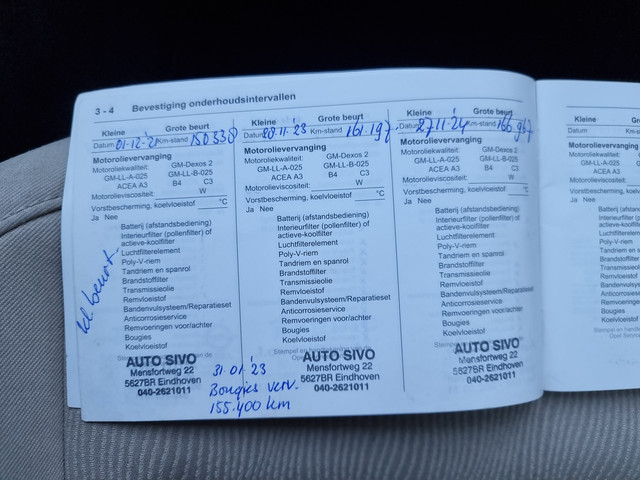 3 - 4 Bevestiging onderhoudsintervallen
Kleine Grote beurt
Datum 01-12-'21 Km-stand 150338
Motorolievervanging
Motoroliekwaliteit: GM-Dexos 2
GM-LL-A-025 GM-LL-B-025
ACEA A3 B4 C3
Motorolieviscositeit: W
Vorstbescherming, koelvloeistof °C
Ja Nee
Batterij (afstandsbediening)
Interieurfilter (pollenfilter) of
actieve-koolfilter
Luchtfilterelement
Poly-V-riem
Tandriem en spanrol
Brandstoffilter
Transmissieolie
Remvloeistof
Bandenvulsysteem/Reparatieset
Anticorrosieservice
Remvoeringen voor/achter
Bougies
Koelvloeistof
kl. beurt
AUTO SIVO
Mensfortweg 22
5627BR Eindhoven
040-2621011
31 01 '23
Bougies verv.
155.400 km
Kleine Grote beurt
Datum 28 11 '23 Km-stand 161.197
Motorolievervanging
Motoroliekwaliteit: GM-Dexos 2
GM-LL-A-025 GM-LL-B-025
ACEA A3 B4 C3
Motorolieviscositeit: W
Vorstbescherming, koelvloeistof °C
Ja Nee
Batterij (afstandsbediening)
Interieurfilter (pollenfilter) of
actieve-koolfilter
Luchtfilterelement
Poly-V-riem
Tandriem en spanrol
Brandstoffilter
Transmissieolie
Remvloeistof
Bandenvulsysteem/Reparatieset
Anticorrosieservice
Remvoeringen voor/achter
Bougies
Koelvloeistof
AUTO SIVO
Mensfortweg 22
5627BR Eindhoven
040-2621011
Kleine Grote beurt
Datum 27 11 '24 Km-stand 166.967
Motorolievervanging
Motoroliekwaliteit: GM-Dexos 2
GM-LL-A-025 GM-LL-B-025
ACEA A3 B4 C3
Motorolieviscositeit: W
Vorstbescherming, koelvloeistof °C
Ja Nee
Batterij (afstandsbediening)
Interieurfilter (pollenfilter) of
actieve-koolfilter
Luchtfilterelement
Poly-V-riem
Tandriem en spanrol
Brandstoffilter
Transmissieolie
Remvloeistof
Bandenvulsysteem/Reparatieset
Anticorrosieservice
Remvoeringen voor/achter
Bougies
Koelvloeistof
AUTO SIVO
Mensfortweg 22
5627BR Eindhoven
040-2621011
Kleine
Datum Km-stand
Motorolievervanging
Motoroliekwaliteit:
GM-LL-A-025
ACEA A3
Motorolieviscositeit:
Vorstbescherming, koelv
Ja Nee